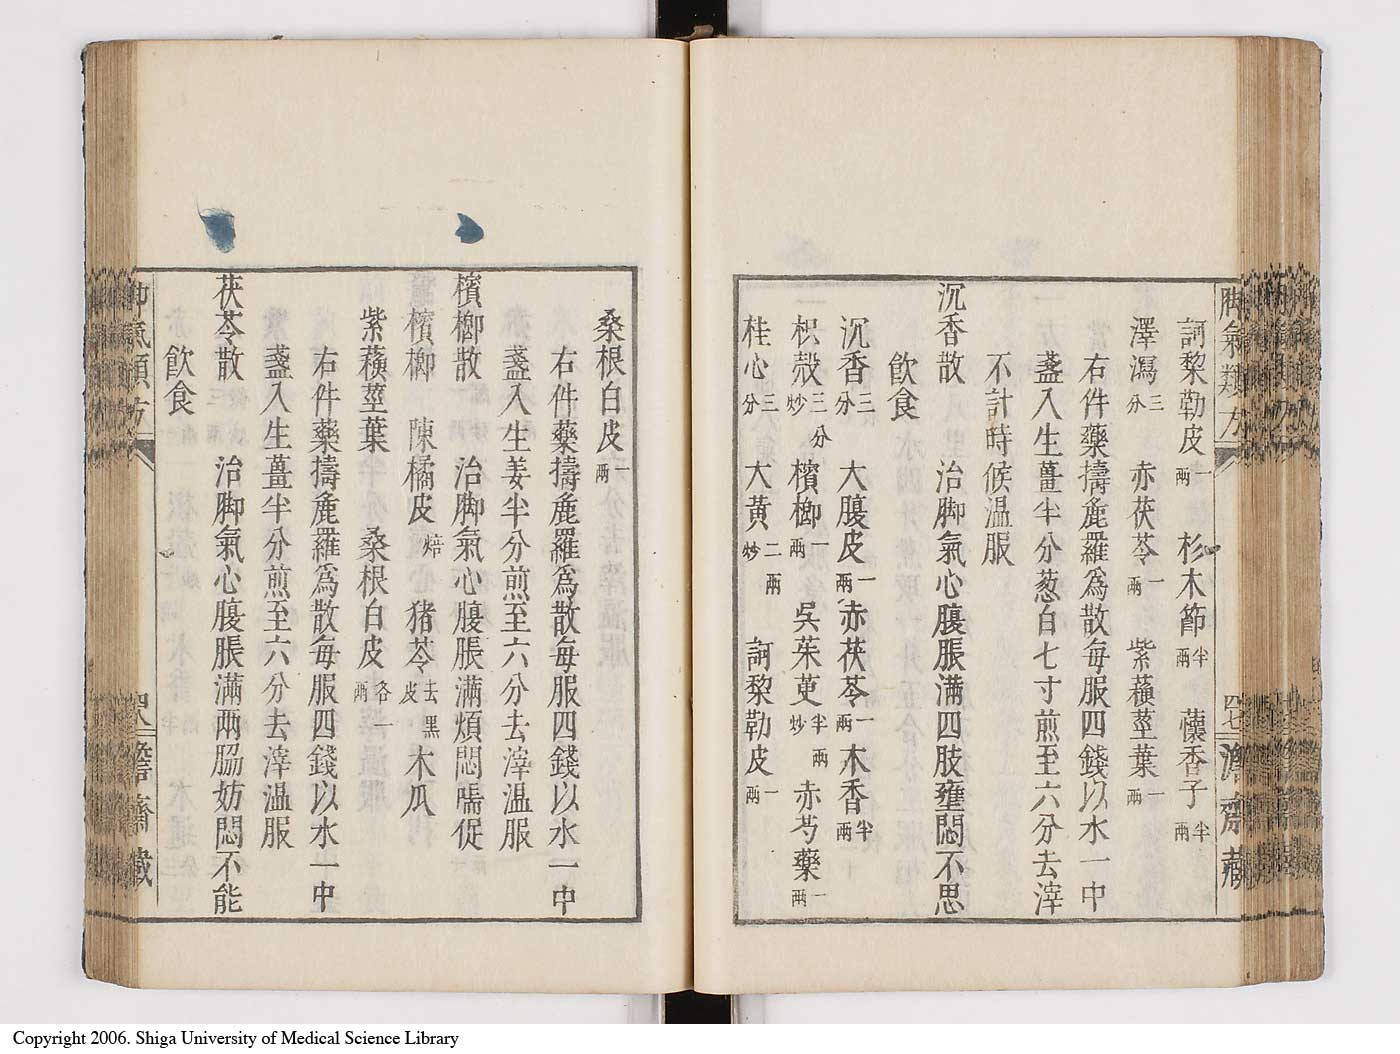 訶黎勒皮一兩 杉木節半兩 蘹香子半兩
澤瀉三分 赤茯苓一兩 紫蘓莖葉一兩
右件藥擣麁羅為散每服四錢以水一中
盞入生薑半分葱白七寸煎至六分去滓
不計時候温服
沉香散 治脚氣心腹脹滿四肢壅悶不思
飲食
沉香三分 大腹皮一兩 赤茯苓一兩 木香半兩
枳殼三分炒 檳榔一兩 呉茱萸半兩炒 赤芍藥一兩
桂心三分 大黄二兩炒 訶黎勒皮一兩
脚氣類方 四七 澹齋藏
桑根白皮一兩
右件藥擣麁羅為散每服四錢以水一中
盞入生姜半分煎至六分去滓温服
檳榔散 治脚氣心腹脹滿煩悶喘促
檳榔 陳橘皮焙 猪苓去黑皮 木瓜
紫蘓莖葉 桑根白皮各一兩
右件藥擣麁羅為散每服四錢以水一中
盞入生薑半分煎至六分去滓温服
茯苓散 治脚氣心腹脹滿兩脇妨悶不能
飲食
Copyright 2006. Shiga University of Medical Science Library